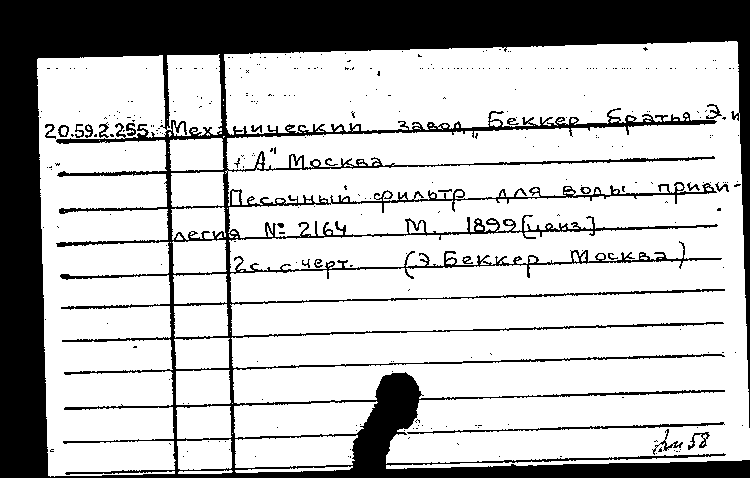 20.59.2.255. Механический завод „Беккер, Братья Э. и
А." Москва.
Песочный фильтр для воды, приви-
легия № 2164 М., 1899 [ценз.]
2 с. с черт. (Э. Беккер Москва)
58